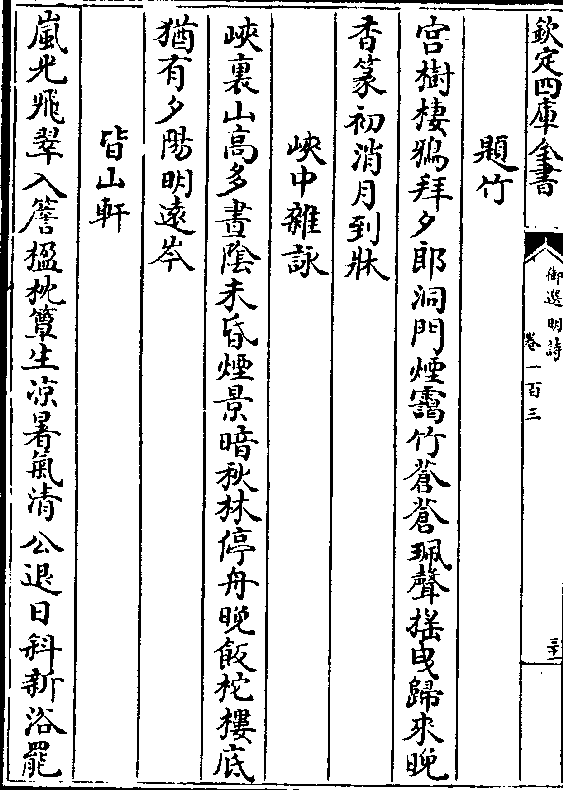 欽定四庫全書
御選明詩
卷一百三
三十
題竹
宮樹棲鴉拜夕郎洞門煙靄竹蒼蒼珮聲揺曳歸來晚
香篆初消月到牀
峽中雜詠
峽裏山高多晝陰未昏煙景暗秋林停舟晚飯柁樓底
猶有夕陽明遠岑
皆山軒
嵐光飛翠入簷楹枕簟生凉暑氣清公退日斜新浴罷